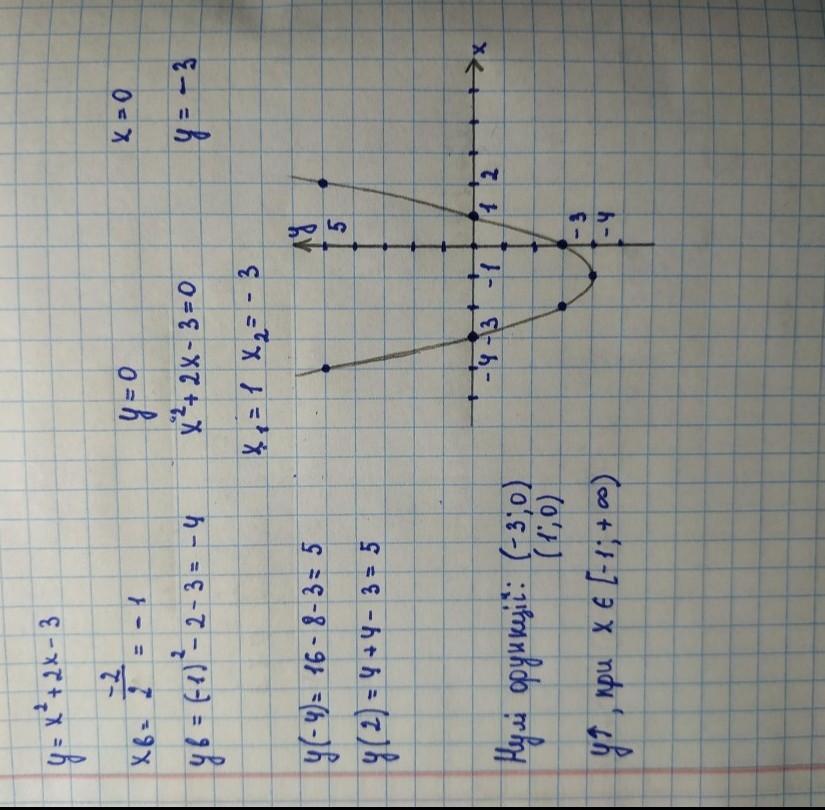 y = x² + 2x - 3
xв = -2/2 = -1
yв = (-1)² - 2 - 3 = -4
y = 0
x² + 2x - 3 = 0
x₁ = 1 x₂ = -3
x = 0
y = -3
y(-4) = 16 - 8 - 3 = 5
y(2) = 4 + 4 - 3 = 5
y
5
x
-4 -3 -1 1 2
-3
-4
Нулі функції: (-3; 0)
(1; 0)
y↑, при x ∈ [-1; +∞)